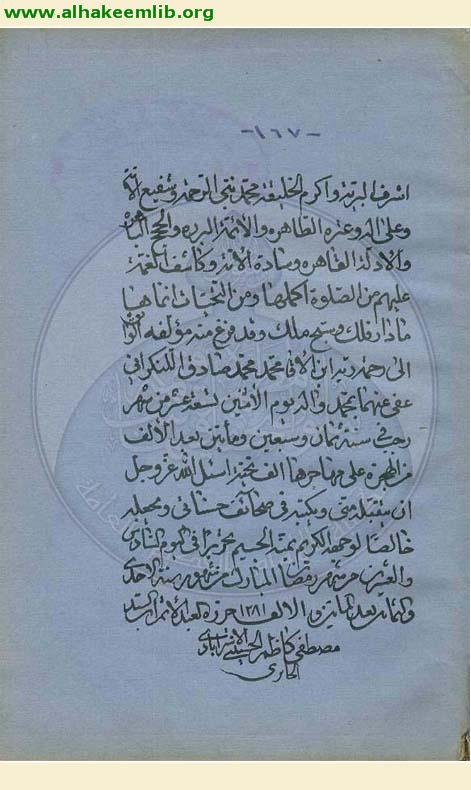 www.alhakeemlib.org
-١٦٧-
اشرف البريّة واكرم الخليقة محمّد نبيّ الرّحمة وشفيع الأمّة
وعلى اله وعترته الطّاهره والائمّة البرره والحجج الباهره
والادلّة القاهره وسادة الامّة وكاشف الغمّة
عليهم من الصّلوة اكملها ومن التحيّات انماها
ما دار فلك وسبّح ملك وقد فرغ منه مؤلّفه
الى رحمة ربّه ابن الاقا محمّد محمّد صادق اللنكراني
عفى عنهما بمحمّد واله يوم الاثنين لتسعة عشر من شهر
رجب في سنة ثمان وسبعين ومأتين بعد الألف
من الهجرة على مهاجرها الف تحيّة اسئل الله عزّ وجلّ
ان يتقبّله منّي ويكتبه في صحائف حسناتي ويجعله
خالصًا لوجهه الكريم بمنّه الجسيم تحريرًا في اليوم السّادس
والعشرين من شهر رمضان المبارك من شهور سنة الاحدى
والثمانين بعد المأتين والالف ١٢٨١ حرّره العبد الاثم ابن السيّد
مصطفى كاظم الحسيني الاسترابادي
الحائري